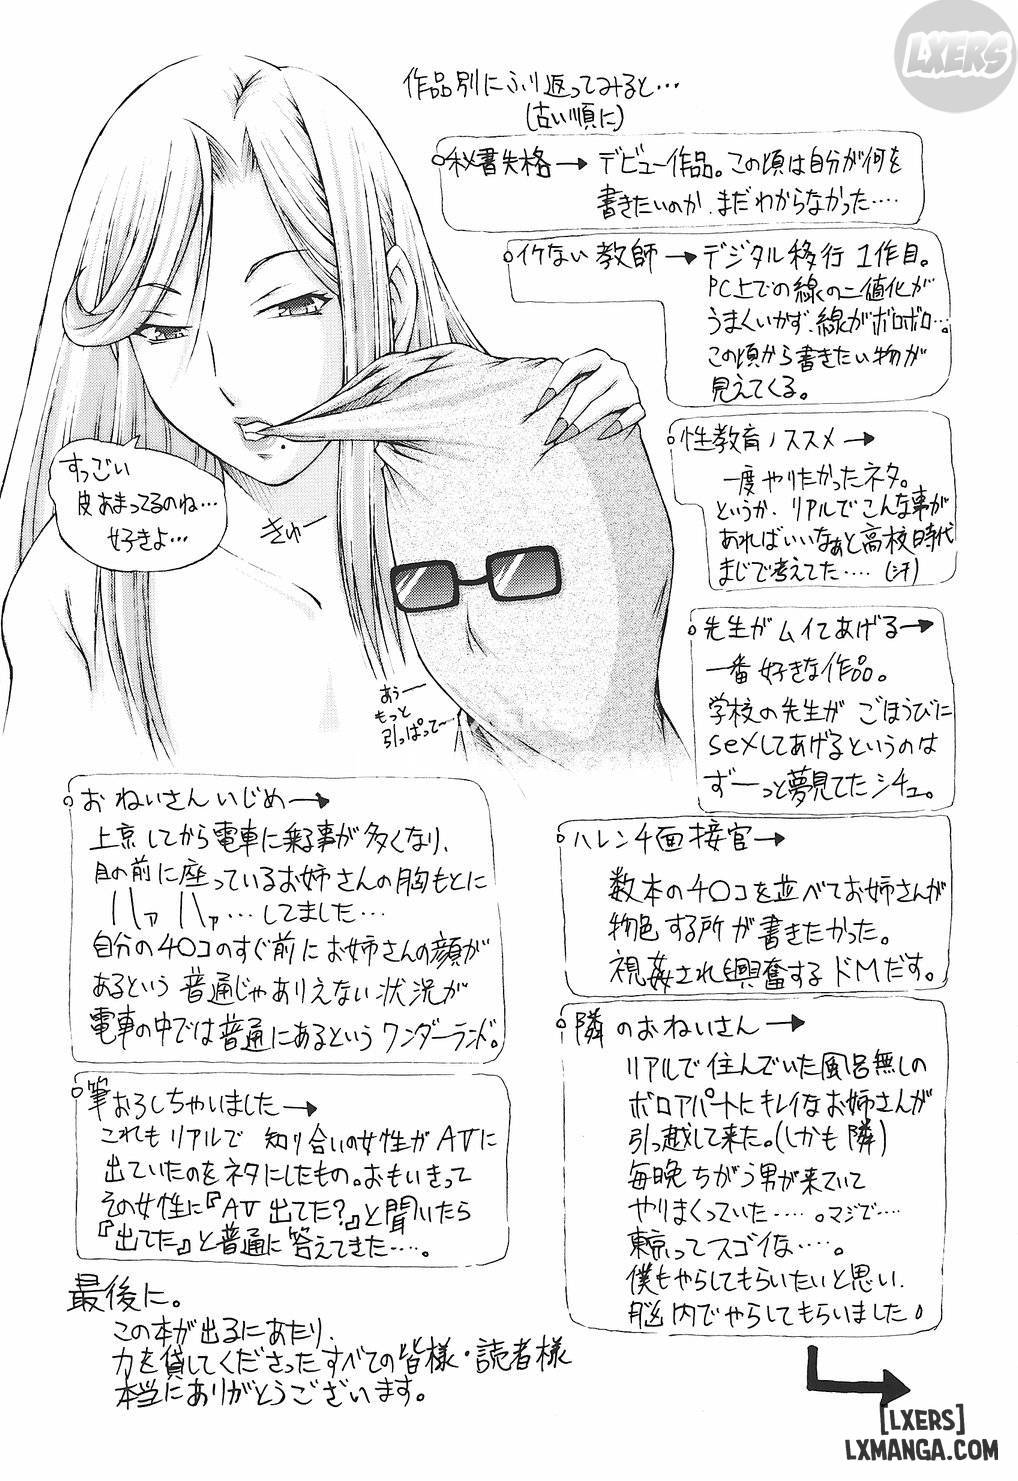 LXERS
作品別にふり返ってみると…
(古い順に)
秘書失格→デビュー作品。この頃は自分が何を
書きたいのか、まだわからなかった‥‥
イケない教師→デジタル移行1作目。
PC上での線の二値化が
うまくいかず、線がボロボロ…。
この頃から書きたい物が
見えてくる。
性教育ノススメ→
一度やりたかったネタ。
というか、リアルでこんな事が
あればいいなぁと高校時代
まじで考えてた‥‥(汗)
すっごい
皮あまってるのね…
好きよ…
きゅー
あぅー
もっと
引っぱって〜
先生がムイてあげる→
一番好きな作品。
学校の先生がごほうびに
sexしてあげるというのは
ずーっと夢見てたシチュ。
おねいさんいじめ→
上京してから電車に乗る事が多くなり、
目の前に座っているお姉さんの胸もとに
ハァハァ…してました…
自分のチ○コのすぐ前にお姉さんの顔が
あるという普通じゃありえない状況が
電車の中では普通にあるというワンダーランド。
ハレンチ面接官→
数本のチ○コを並べてお姉さんが
物色する所が書きたかった。
視姦され興奮するドMだす。
筆おろしちゃいました→
これもリアルで知り合いの女性がAVに
出ていたのをネタにしたもの。おもいきって
その女性に『AV出てた?』と聞いたら
『出てた』と普通に答えてきた‥‥。
隣のおねいさん→
リアルで住んでいた風呂無しの
ボロアパートにキレイなお姉さんが
引っ越して来た。(しかも隣)
毎晩ちがう男が来ていて
やりまくっていた‥‥。マジで‥‥
東京ってスゴイな‥‥。
僕もやらしてもらいたいと思い、
脳内でやらしてもらいました。
最後に。
この本が出るにあたり、
力を貸してくださったすべての皆様・読者様
本当にありがとうございます。
[LXERS]
LXMANGA.COM